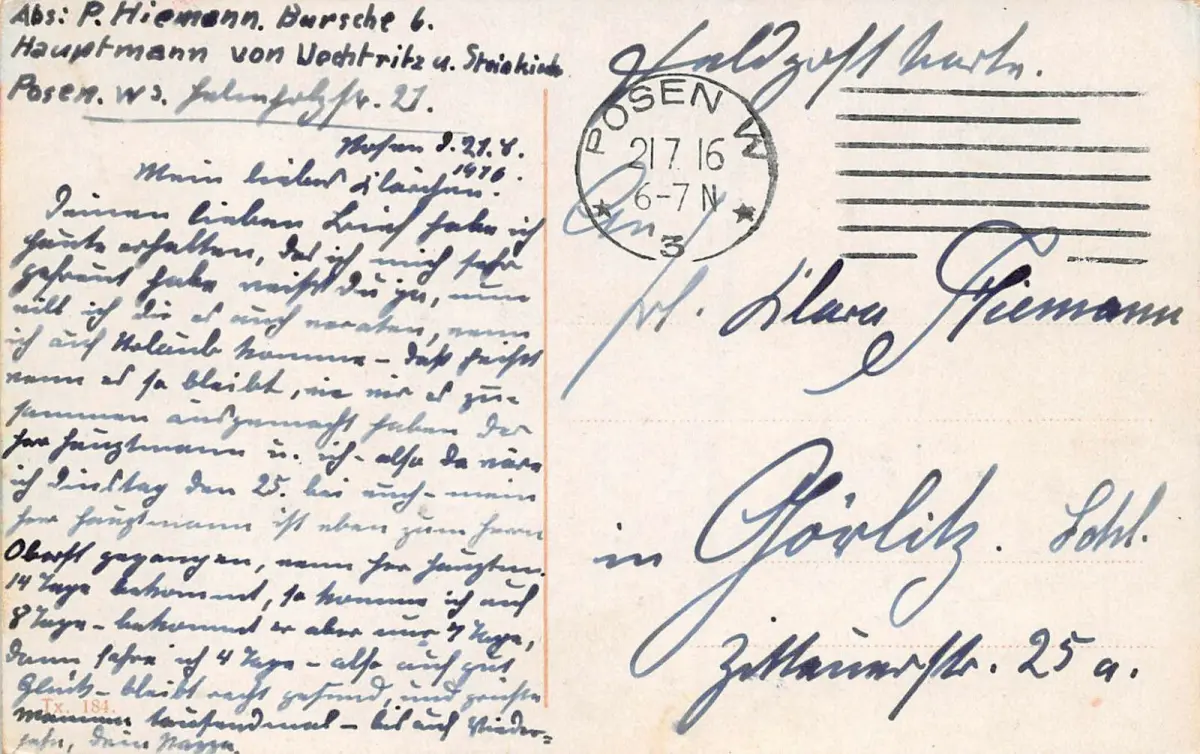 Abs: P. Hiemann. Bursche b.
Hauptmann von Uechtritz u. Steinkirch
Posen. W3. Helmholzstr. 21.
Posen d. 21.7.
1916.
Mein liebes Klärchen.
Deinen lieben Brief habe ich
heute erhalten, das ich mich sehr
gefreut habe weißt du ja, nun
will ich dir es auch verraten, wenn
ich auf Urlaub komme – daß heißt
wenn es so bleibt, wie wir es zu-
sammen ausgemacht haben der
Herr Hauptmann u. ich – also da wäre
ich Dinstag den 25. bei euch – mein
Herr Hauptmann ist eben zum Herrn
Oberst gegangen, wenn Herr Hauptm.
14 Tage bekommt, so komme ich auf
8 Tage – bekommt er aber nur 7 Tage,
dann fahre ich 4 Tage – also auf gut
Glück – bleibt recht gesund, und
tausendmal – bis auf Wieder=
sehn, dein
Tx. 184.
Feldpostkarte.
POSEN W
21 7 16
6-7 N
3
An
Frl. Klara Hiemann
in Görlitz. Schl.
Zittauerstr. 25 a.